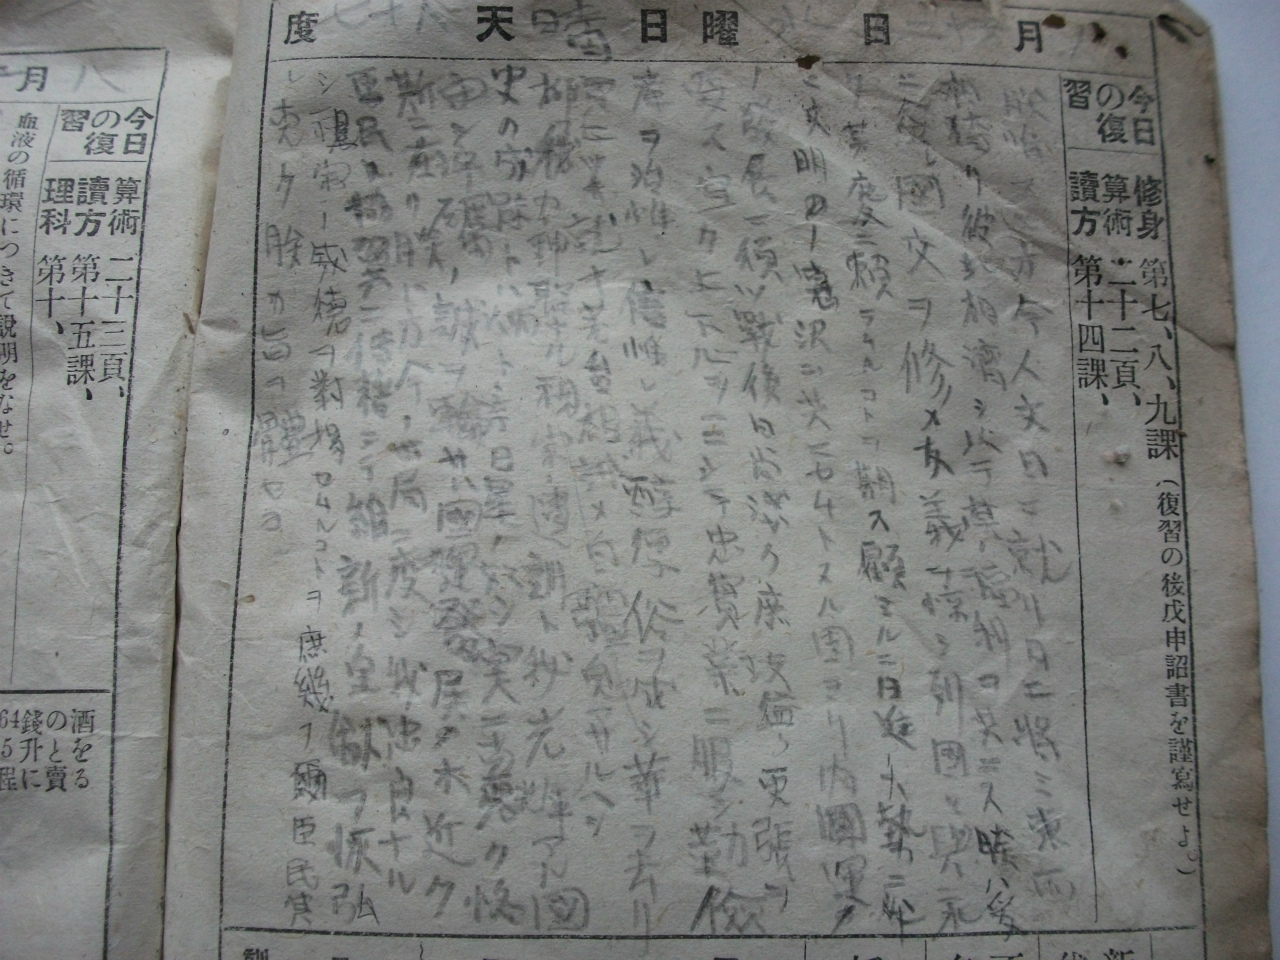 月 日 曜日 天晴 度
今日の復習
修身 第七、八、九課(復習の後戊申詔書を謹寫せよ。)
算術 二十二頁、
讀方 第十四課、
方今人文日ニ就リ月ニ將ミ東西
相倚リ彼此相濟シ以テ其ノ福利ヲ共ニス朕ハ爰
ニ益々國交ヲ修メ友義ヲ惇シ列國ト與ニ永
ク其ノ慶ニ頼ラムコトヲ期ス顧ミルニ日進ノ大勢ニ伴
ヒ文明ノ惠沢ヲ共ニセムトスル固ヨリ内國運
ノ發展ニ須ツ戰後日尚浅ク庶政益々更張ヲ
要ス宜ク上下心ヲ一ニシテ忠實業ニ服シ勤儉
産ヲ治メ惟レ信惟レ義醇厚俗ヲ成シ華ヲ去リ
實ニ就キ荒怠相誡メ自彊息マサルヘシ
抑々我カ神聖ナル祖宗ノ遺訓ト我カ光輝アル國
史ノ成跡トハ炳トシテ日星ノ如シ實ニ克ク恪
守シ淬礪ノ誠ヲ輸サハ國運發展ノ本近ク
斯ニ在リ朕ハ方今ノ世局ニ處シ我カ忠良ナル
臣民ノ協翼ニ倚藉シテ維新ノ皇猷ヲ恢弘
シ祖宗ノ威徳ヲ對揚セムコトヲ庶幾フ爾臣民其
レ克ク朕カ旨ヲ體セヨ
八月
今日の復習
算術 二十三頁、
讀方 第十五課、
理科 第十、
血液の循環につきて説明をなせ。